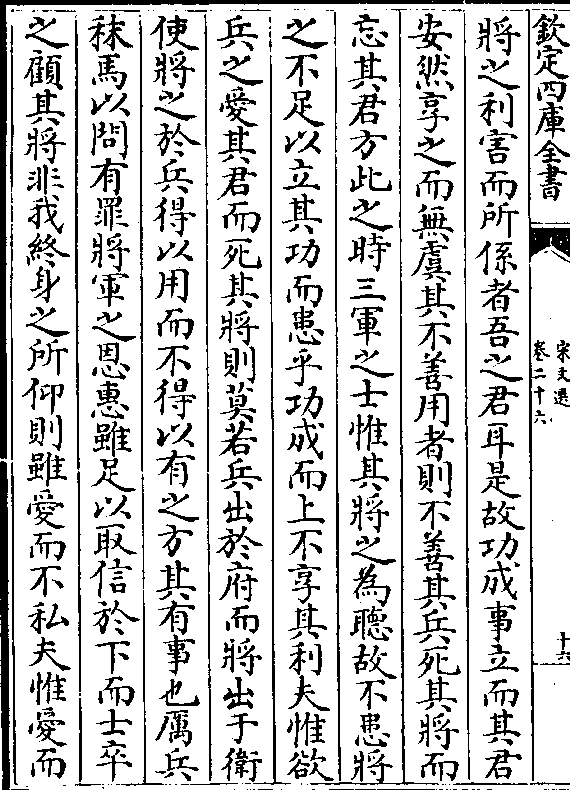 欽定四庫全書
宋文選
卷二十六
十六
將之利害而所係者吾之君耳是故功成事立而其君
安然享之而無虞其不善用者則不善其兵死其將而
忘其君方此之時三軍之士惟其將之為聽故不患將
之不足以立其功而患乎功成而上不享其利夫惟欲
兵之愛其君而死其將則莫若兵出於府而將出于衛
使將之於兵得以用而不得以有之方其有事也厲兵
秣馬以問有罪將軍之恩惠雖足以取信於下而士卒
之顧其將非我終身之所仰則雖愛而不私夫惟愛而